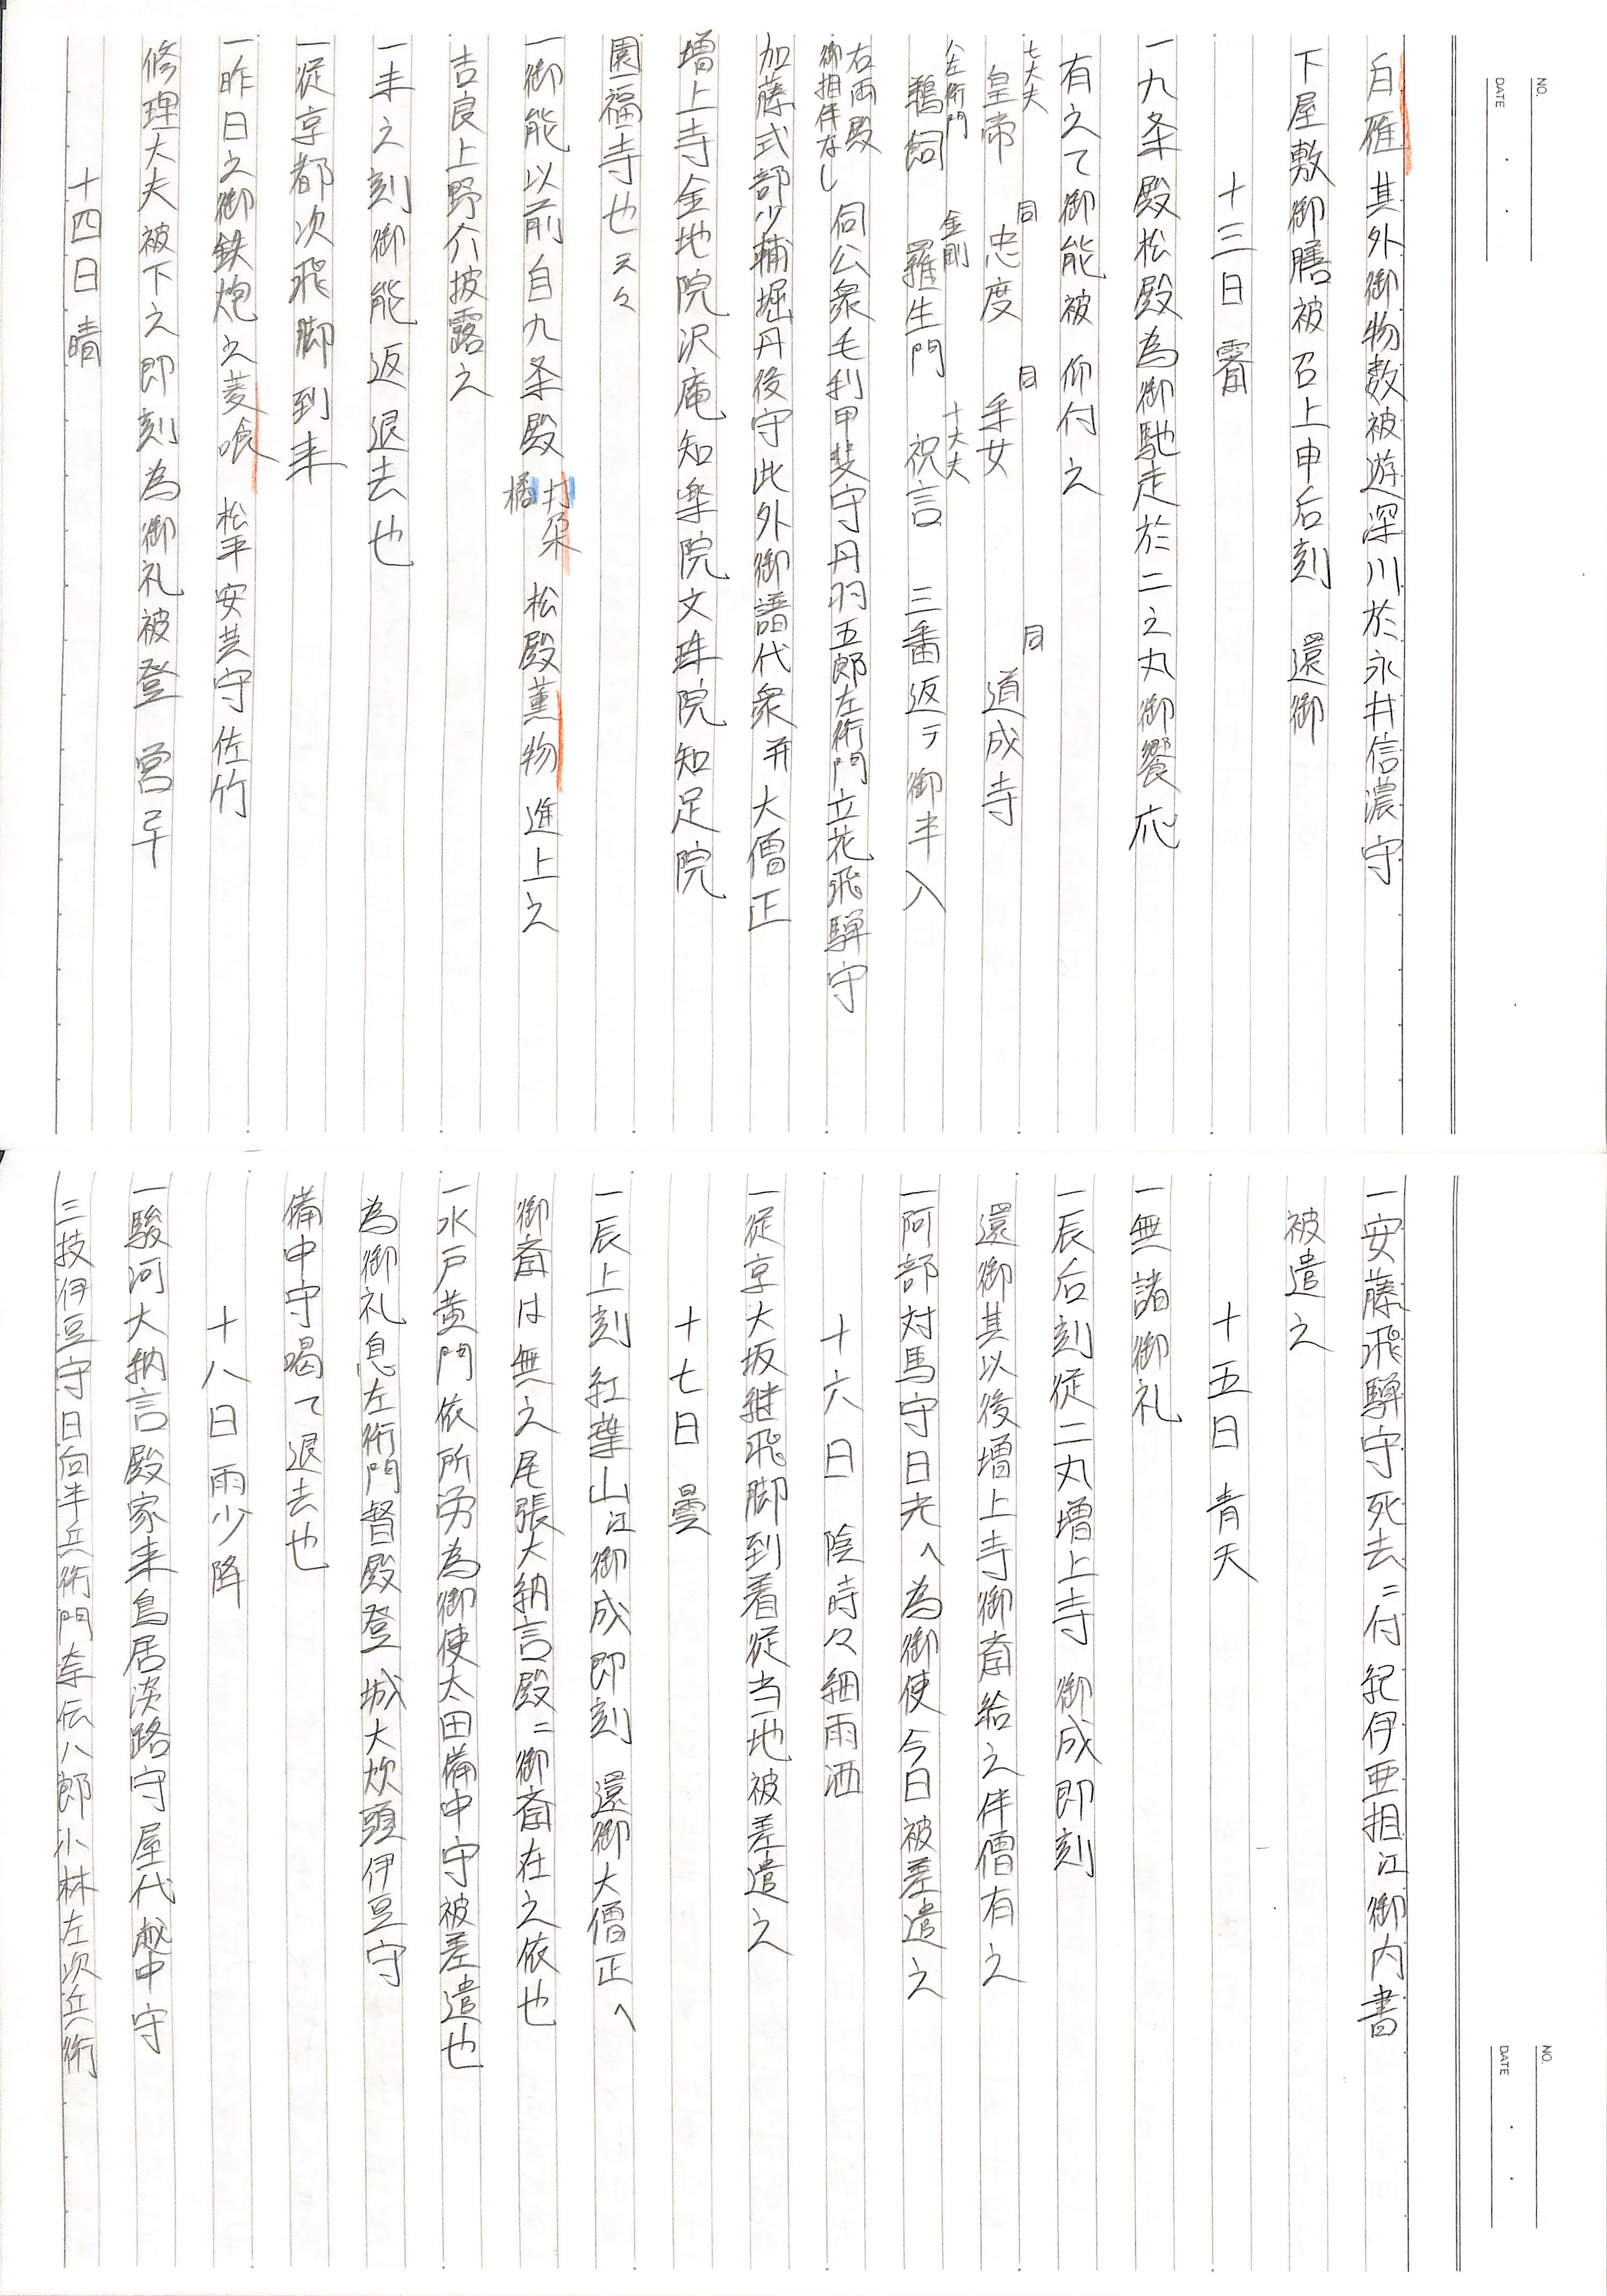 NO.
DATE
白雁其外御物数被遊深川於永井信濃守
下屋敷御膳被召上申后刻 還御
十三日 霽
一九条殿松殿為御馳走於二之丸御饗応
有之て御能被 仰付之
七大夫 皇帝 同 忠度 同 采女 同 道成寺
左衛門 鵜飼 金剛 羅生門 七大夫 祝言 三番返テ御半入
右両殿御相伴なし 伺公衆毛利甲斐守丹羽五郎左衛門立花飛騨守
加藤式部少輔堀丹後守此外御譜代衆并大僧正
増上寺金地院沢庵知楽院文珠院知足院
園福寺也云々
一御能以前自九条殿 打朶 橘 松殿薫物進上之
吉良上野介披露之
一未之刻御能返退去也
一従京都次飛脚到来
一昨日之御鉄炮之菱喰 松平安芸守佐竹
修理大夫被下之即刻為御礼被登 営畢
十四日 晴
NO.
DATE
一安藤飛騨守死去ニ付紀伊亜相江御内書
被遣之
十五日 青天
一無諸御礼
一辰后刻従二丸増上寺 御成即刻
還御其以後増上寺御斎給之伴僧有之
一阿部対馬守日光へ為御使今日被差遣之
十六日 陰時々細雨洒
一従京大坂継飛脚到着従当地被差遣之
十七日 曇
一辰上刻紅葉山江御成即刻 還御大僧正へ
御斎は無之尾張大納言殿ニ御斎在之依也
一水戸黄門依所労為御使太田備中守被差遣也
為御礼息左衛門督殿登 城大炊頭伊豆守
備中守謁て退去也
十八日 雨少降
一駿河大納言殿家来鳥居淡路守屋代越中守
三枝伊豆守日向半兵衛門奈伝八郎小林左次兵衛